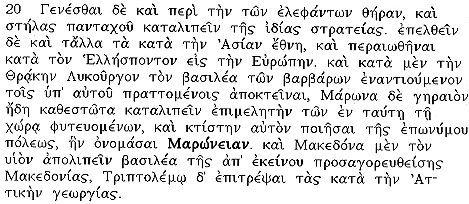 20 Γενέσθαι δὲ καὶ περὶ τὴν τῶν ἐλεφάντων θήραν, καὶ
στήλας πανταχοῦ καταλιπεῖν τῆς ἰδίας στρατείας. ἐπελθεῖν
δὲ καὶ τἄλλα τὰ κατὰ τὴν Ἀσίαν ἔθνη, καὶ περαιωθῆναι
κατὰ τὸν Ἑλλήσποντον εἰς τὴν Εὐρώπην. καὶ κατὰ μὲν τὴν
Θρᾴκην Λυκοῦργον τὸν βασιλέα τῶν βαρβάρων ἐναντιούμενον
τοῖς ὑπ' αὐτοῦ πραττομένοις ἀποκτεῖναι, Μάρωνα δὲ γηραιὸν
ἤδη καθεστῶτα καταλιπεῖν ἐπιμελητὴν τῶν ἐν ταύτῃ τῇ
χώρᾳ φυτευομένων, καὶ κτίστην αὐτὸν ποιῆσαι τῆς ἐπωνύμου
πόλεως, ἣν ὀνομάσαι Μαρώνειαν. καὶ Μακεδόνα μὲν τὸν
υἱὸν ἀπολιπεῖν βασιλέα τῆς ἀπ' ἐκείνου προσαγορευθείσης
Μακεδονίας, Τριπτολέμῳ δ' ἐπιτρέψαι τὰς κατὰ τὴν Ἀτ-
τικὴν γεωργίας.